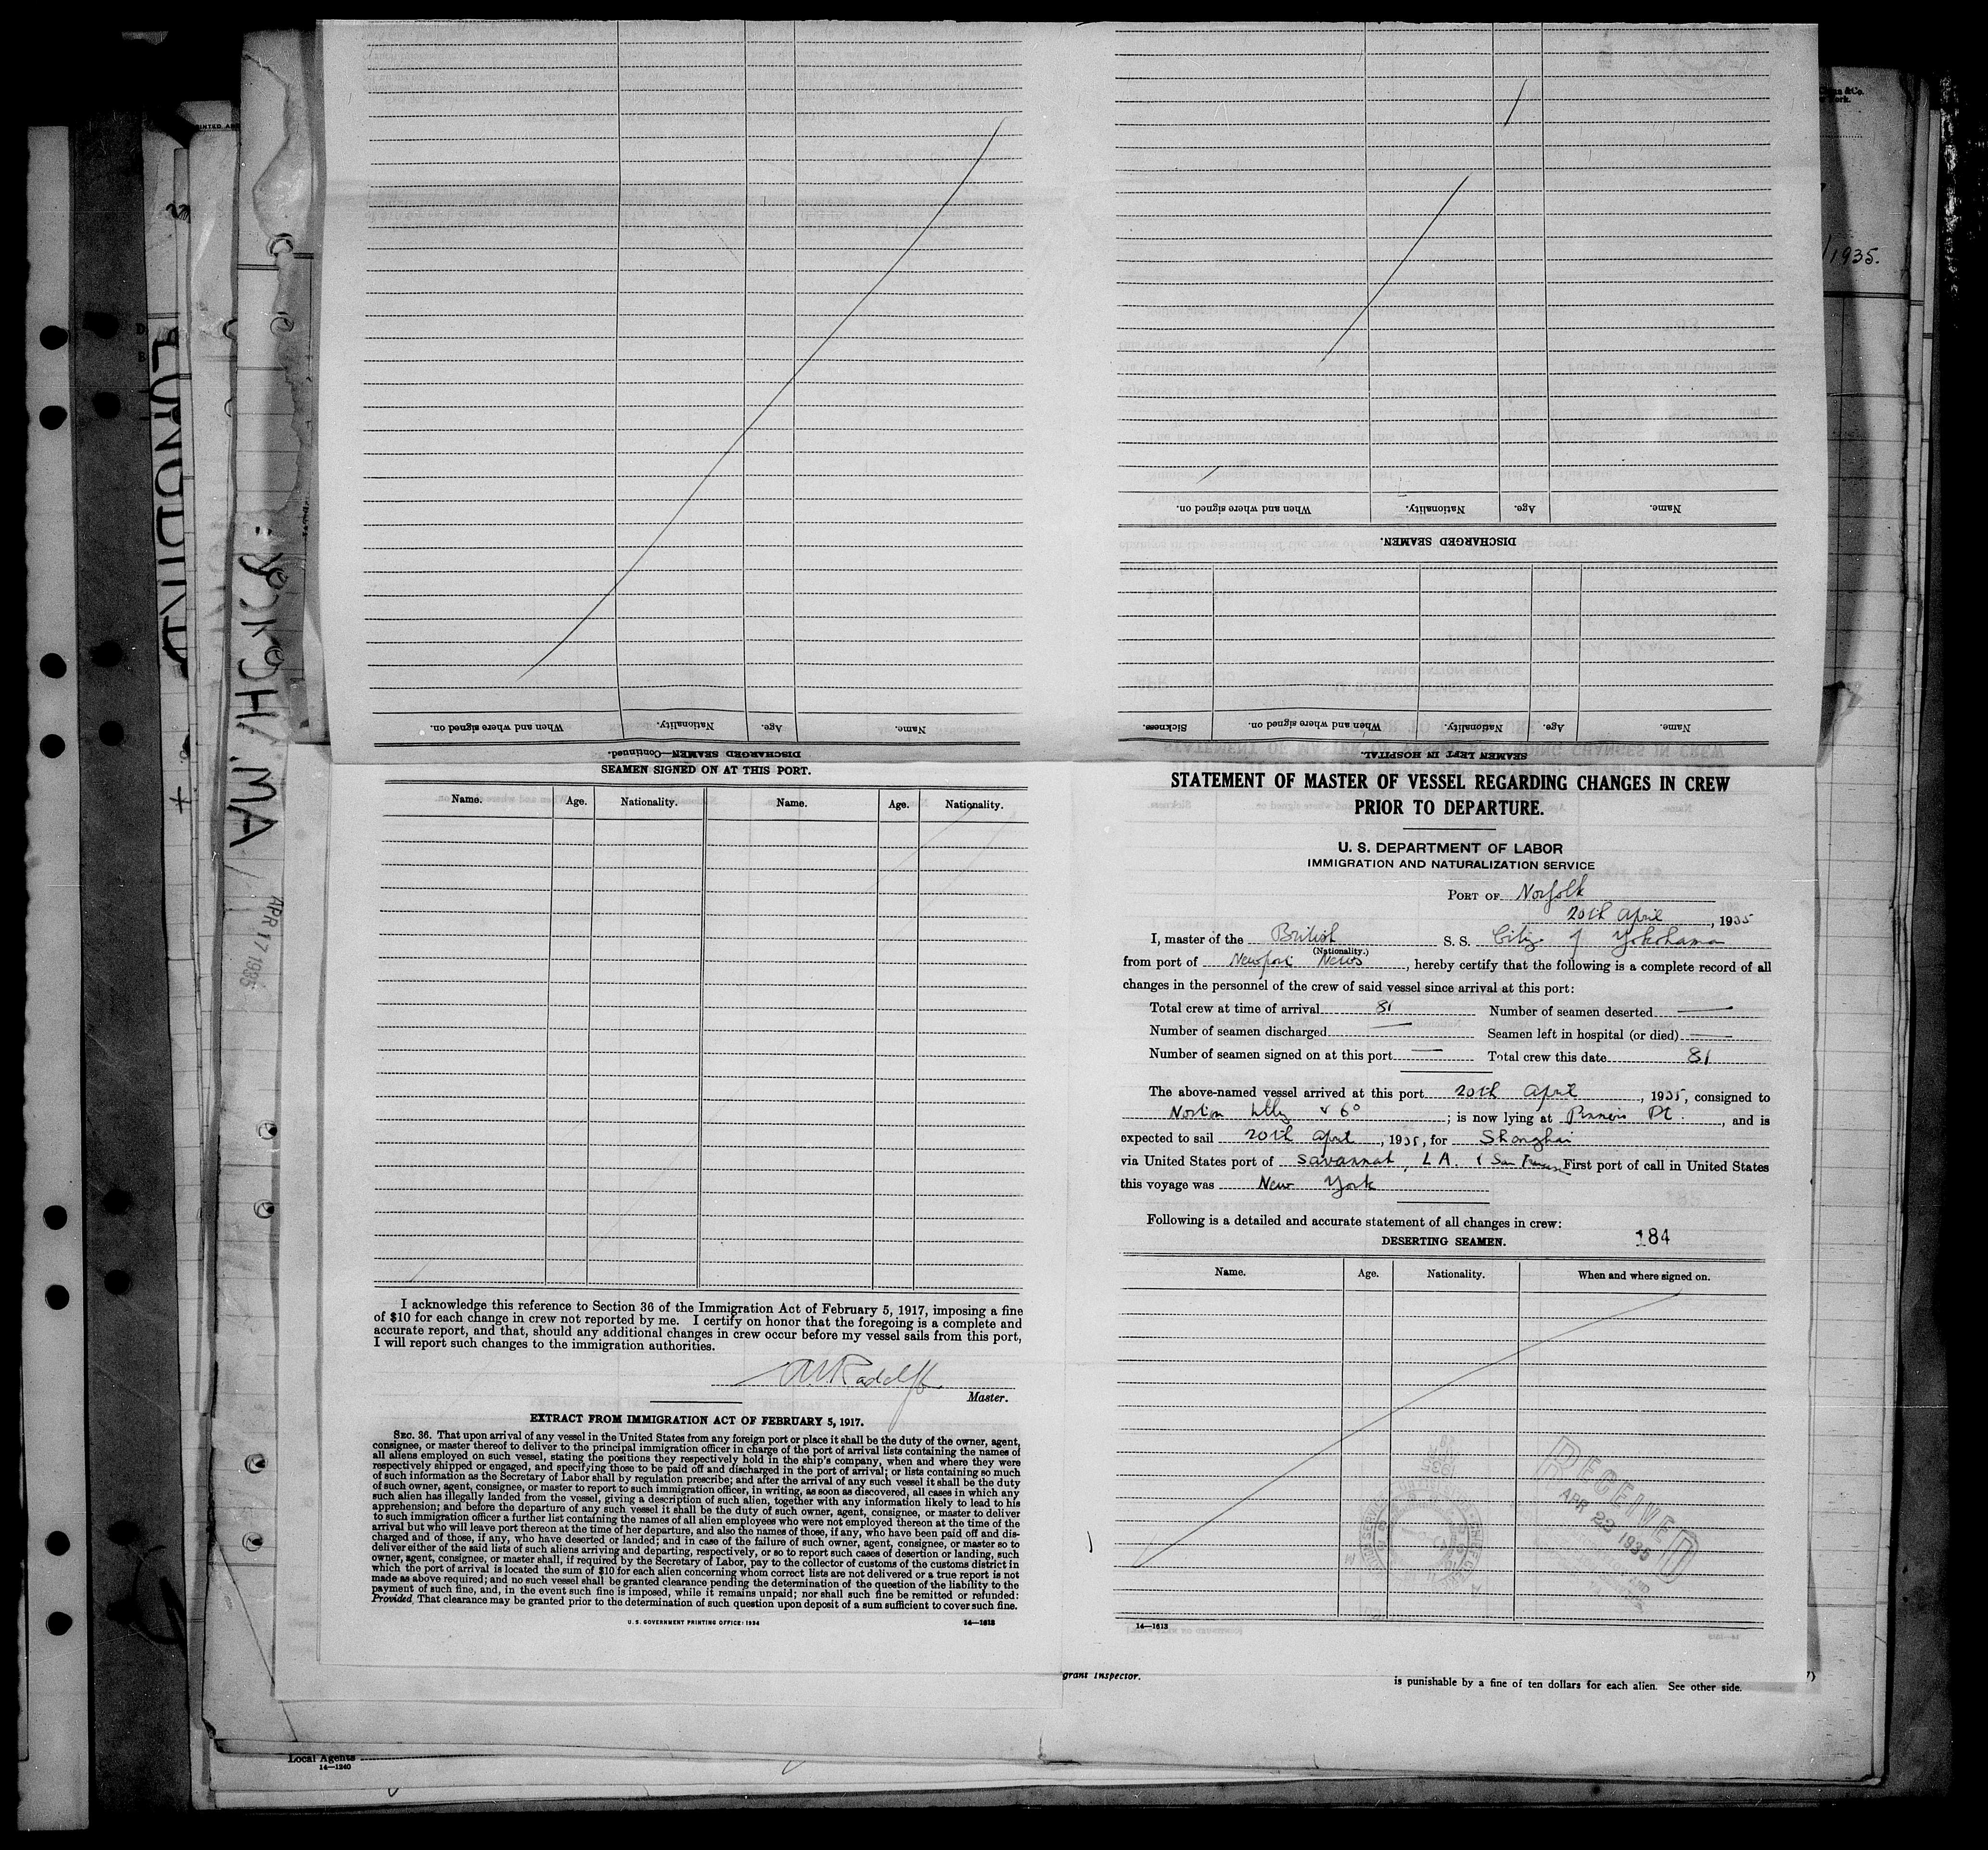 When and where signed on.
Nationality.
Age.
Name.
DISCHARGED SEAMEN—Continued.
When and where signed on.
Nationality.
Age.
Name.
DISCHARGED SEAMEN.
Sickness.
When and where signed on.
Nationality.
Age.
Name.
SEAMEN LEFT IN HOSPITAL.
SEAMEN SIGNED ON AT THIS PORT.
Name. Age. Nationality. Name. Age. Nationality.
I acknowledge this reference to Section 36 of the Immigration Act of February 5, 1917, imposing a fine
of $10 for each change in crew not reported by me. I certify on honor that the foregoing is a complete and
accurate report, and that, should any additional changes in crew occur before my vessel sails from this port,
I will report such changes to the immigration authorities.
Master.
EXTRACT FROM IMMIGRATION ACT OF FEBRUARY 5, 1917.
SEC. 36. That upon arrival of any vessel in the United States from any foreign port or place it shall be the duty of the owner, agent,
consignee, or master thereof to deliver to the principal immigration officer in charge of the port of arrival lists containing the names of
all aliens employed on such vessel, stating the positions they respectively hold in the ship's company, when and where they were
respectively shipped or engaged, and specifying those to be paid off and discharged in the port of arrival; or lists containing so much
of such information as the Secretary of Labor shall by regulation prescribe; and after the arrival of any such vessel it shall be the duty
of such owner, agent, consignee, or master to report to such immigration officer, in writing, as soon as discovered, all cases in which any
such alien has illegally landed from the vessel, giving a description of such alien, together with any information likely to lead to his
apprehension; and before the departure of any such vessel it shall be the duty of such owner, agent, consignee, or master to deliver
to such immigration officer a further list containing the names of all alien employees who were not employed thereon at the time of the
arrival but who will leave port thereon at the time of her departure, and also the names of those, if any, who have been paid off and dis-
charged and of those, if any, who have deserted or landed; and in case of the failure of such owner, agent, consignee, or master so to
deliver either of the said lists of such aliens arriving and departing, respectively, or so to report such cases of desertion or landing, such
owner, agent, consignee, or master shall, if required by the Secretary of Labor, pay to the collector of customs of the customs district in
which the port of arrival is located the sum of $10 for each alien concerning whom correct lists are not delivered or a true report is not
made as above required; and no such vessel shall be granted clearance pending the determination of the question of the liability to the
payment of such fine, and, in the event such fine is imposed, while it remains unpaid; nor shall such fine be remitted or refunded:
Provided, That clearance may be granted prior to the determination of such question upon deposit of a sum sufficient to cover such fine.
U. S. GOVERNMENT PRINTING OFFICE: 1934 14—1613
STATEMENT OF MASTER OF VESSEL REGARDING CHANGES IN CREW
PRIOR TO DEPARTURE.
U. S. DEPARTMENT OF LABOR
IMMIGRATION AND NATURALIZATION SERVICE
PORT OF Norfolk
20th April, 1935
I, master of the British S. S. City of Yokohama
(Nationality.)
from port of Newport News, hereby certify that the following is a complete record of all
changes in the personnel of the crew of said vessel since arrival at this port:
Total crew at time of arrival 81 Number of seamen deserted —
Number of seamen discharged — Seamen left in hospital (or died) —
Number of seamen signed on at this port — Total crew this date 81
The above-named vessel arrived at this port 20th April, 1935, consigned to
Norton Lilly & Co; is now lying at Pt., and is
expected to sail 20th April, 1935, for Shanghai
via United States port of Savannah, LA. & San First port of call in United States
this voyage was New York
Following is a detailed and accurate statement of all changes in crew:
DESERTING SEAMEN. 184
Name. Age. Nationality. When and where signed on.
RECEIVED
APR 22 1935
14—1613
grant Inspector.
is punishable by a fine of ten dollars for each alien. See other side.
Local Agents
14—1240
APR 17 1935
1935.